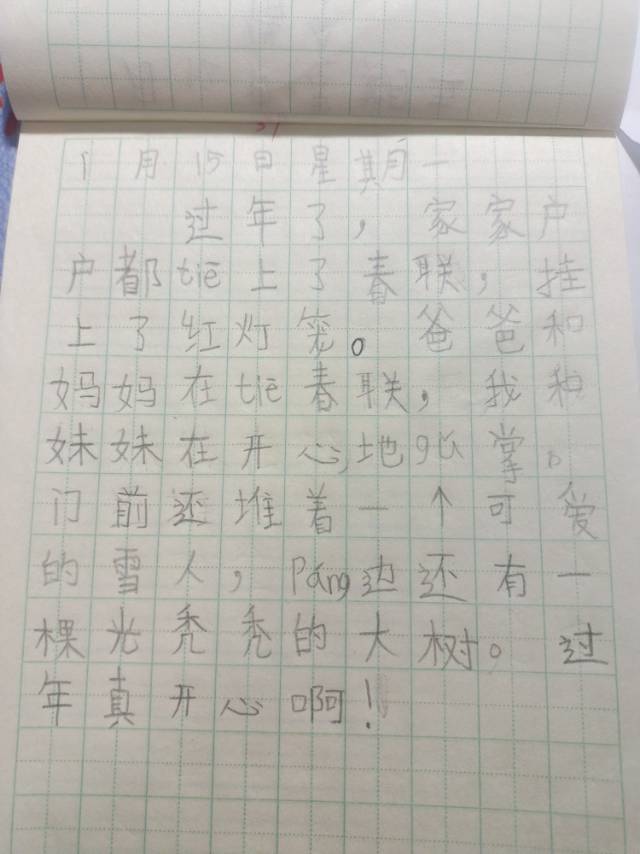 1月15日星期一
过年了，家家户
户都tiē上了春联，挂
上了红灯笼。爸爸和
妈妈在tiē春联，我和
妹妹在开心地gǔ掌。
门前还堆着一个可爱
的雪人，páng边还有一
棵光秃秃的大树。过
年真开心啊！